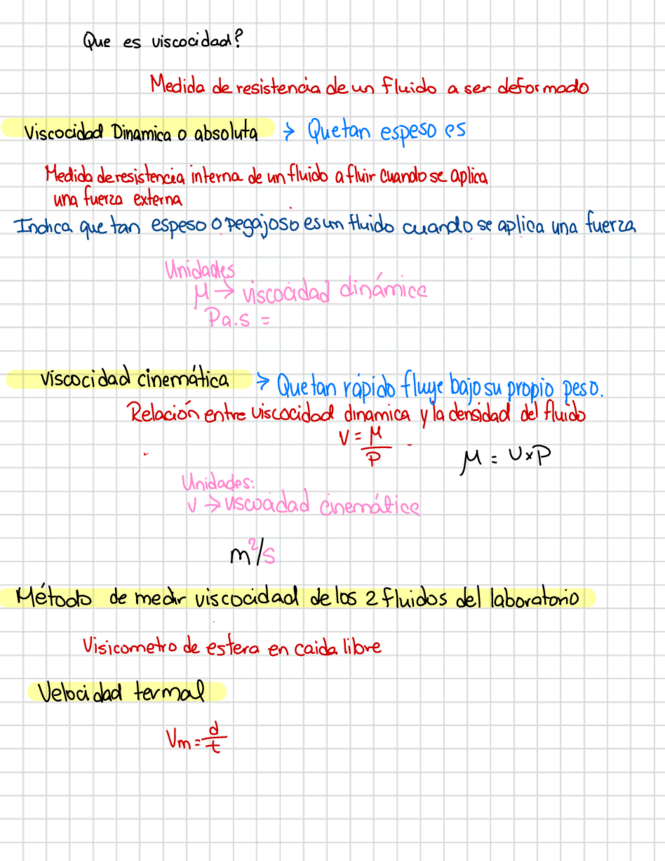 Que es viscocidad?
Medida de resistencia de un fluido a ser deformado
Viscocidad Dinamica o absoluta → Que tan espeso es
Medida de resistencia interna de un fluido a fluir cuando se aplica
una fuerza externa
Indica que tan espeso o pegajoso es un fluido cuando se aplica una fuerza
Unidades
μ → viscocidad dinámica
Pa.s =
viscocidad cinemática → Que tan rápido fluye bajo su propio peso.
Relación entre viscocidad dinamica y la densidad del fluido
V = μ/P
μ = V x P
Unidades:
V → viscocidad cinemática
m²/s
Método de medir viscocidad de los 2 fluidos del laboratorio
Visicometro de esfera en caida libre
Velocidad termal
Vm = d/t